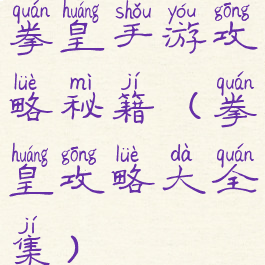 quán huáng shǒu yóu gōng
拳皇手游攻
lüè mì jí quán
略秘籍（拳
huáng gōng lüè dà quán
皇攻略大全
jí
集）